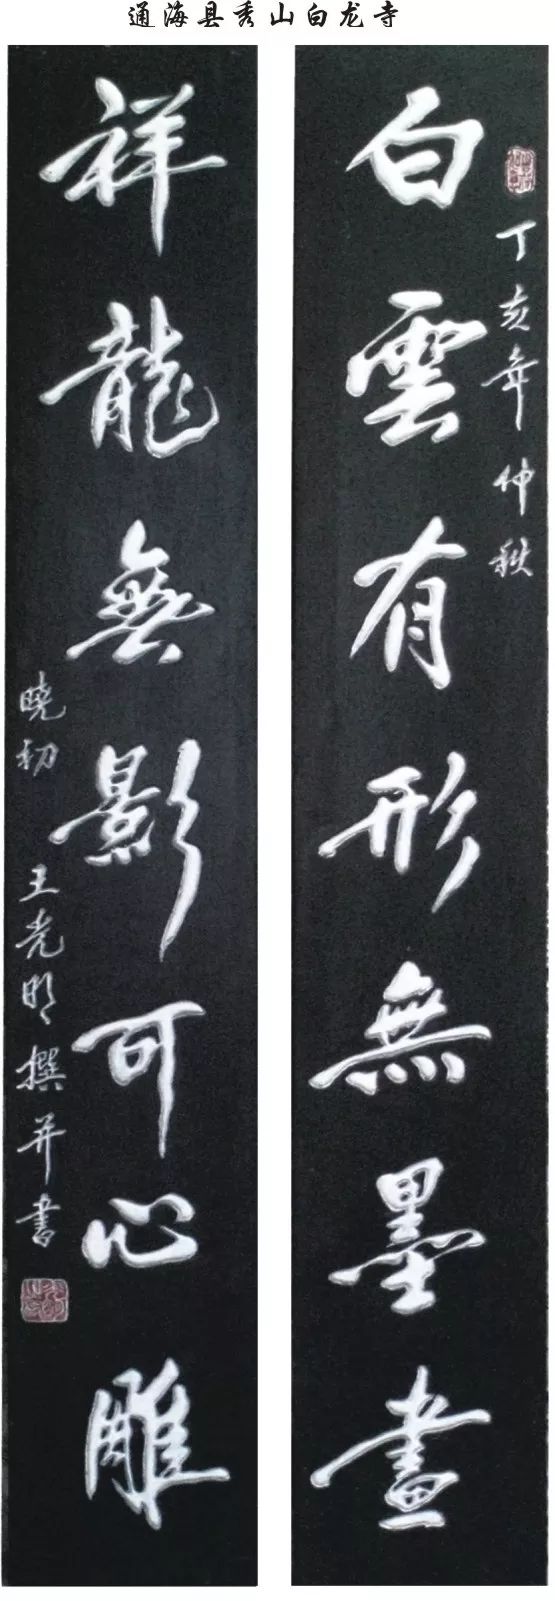 通海县秀山白龙寺
丁亥年仲秋
白雲有形無墨畫
祥龍無影可心雕
曉初 王光明撰并書